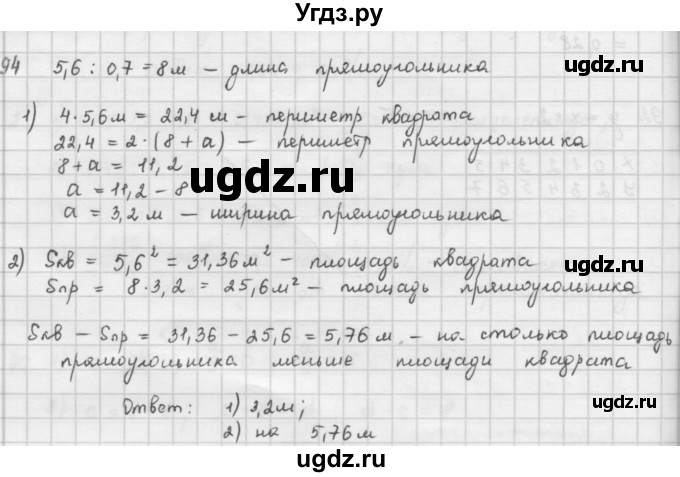 Угдз.ру
94 5,6 : 0,7 = 8 м – длина прямоугольника
1) 4·5,6 м = 22,4 м – периметр квадрата
22,4 = 2·(8 + а) – периметр прямоугольника
8 + а = 11,2
а = 11,2 – 8
а = 3,2 м – ширина прямоугольника
угдз.ру
ugdz.ru
2) Sкв = 5,6² = 31,36 м² – площадь квадрата
Sпр = 8·3,2 = 25,6 м² – площадь прямоугольника
Sкв – Sпр = 31,36 – 25,6 = 5,76 м – на столько площадь
прямоугольника меньше площади квадрата
Ответ: 1) 3,2 м;
2) на 5,76 м
угдз.ру
ugdz.ru
угдз.ру
ugdz.ru